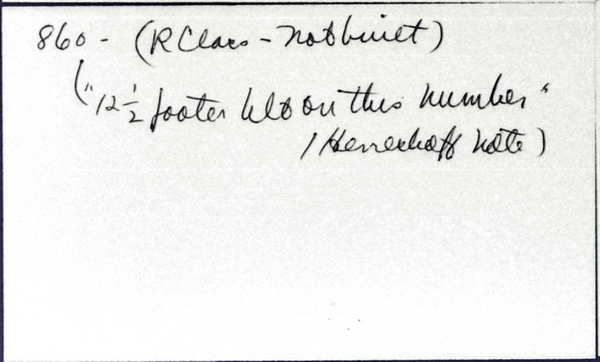 860 - (R Class - not built)
("12 1/2 footer like on this number"
/ Herreshoff note)